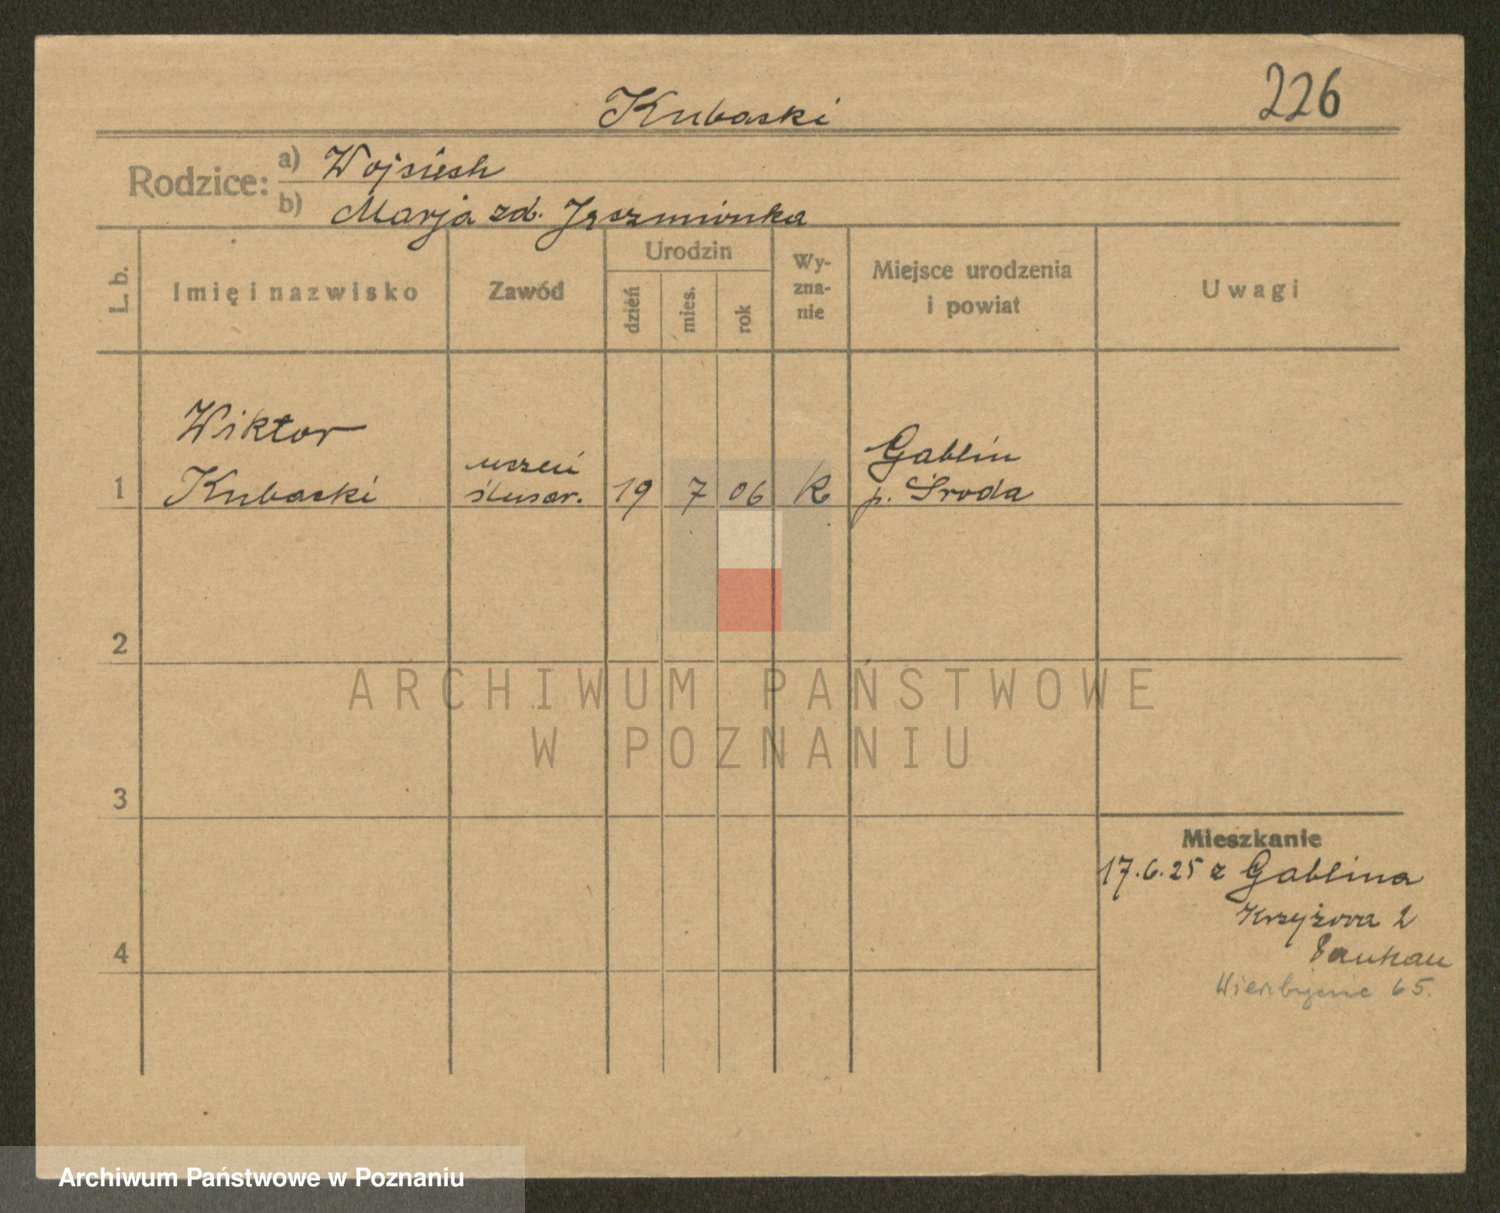 226
Kubacki
Rodzice: a) Wojciech
b) Marja zd. Jęczmionka
L. b.
Imię i nazwisko
Zawód
Urodzin
dzień
mies.
rok
Wy-
zna-
nie
Miejsce urodzenia
i powiat
Uwagi
1
Wiktor
Kubacki
uczeń
ślusar.
19
7
06
K
Gablin
p. Środa
2
3
4
Mieszkanie
17.6.25 z Gablina
Krzyżowa 2
65.
ARCHIWUM PAŃSTWOWE
W POZNANIU
Archiwum Państwowe w Poznaniu